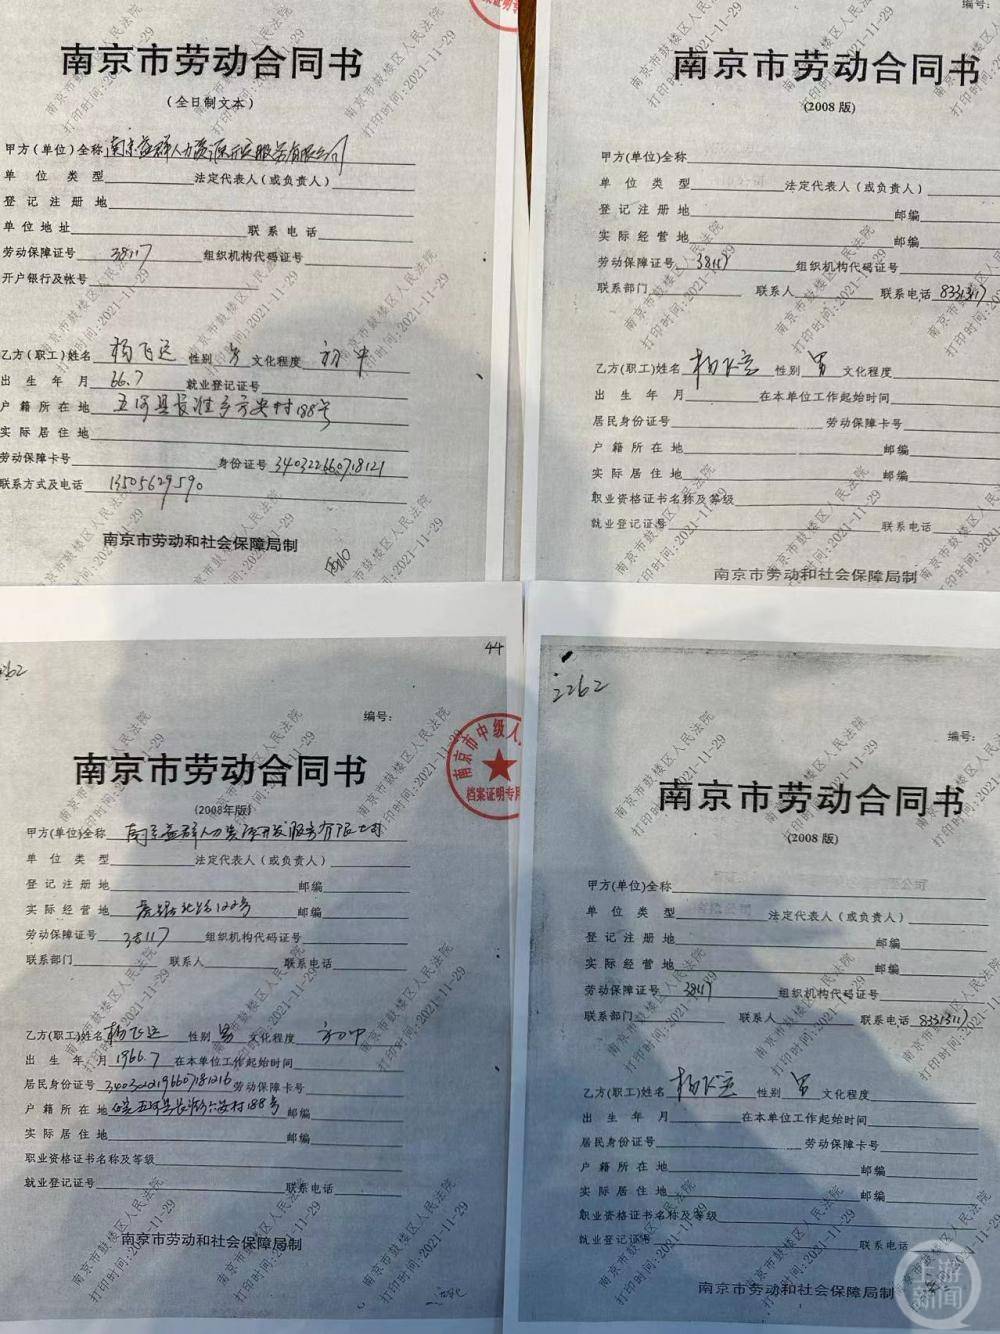 南京市劳动合同书
（全日制文本）
甲方（单位）全称 南京益群人力资源开发服务有限公司
单位类型 法定代表人（或负责人）
登记注册地
单位地址 联系电话
劳动保障证号 38117 组织机构代码证号
开户银行及帐号
乙方（职工）姓名 杨飞运 性别 男 文化程度 初中
出生年月 66.7 就业登记证号
户籍所在地 五河县长淮乡 村188号
实际居住地
劳动保障卡号 身份证号 340322660718121
联系方式及电话 13505629590
南京市劳动和社会保障局制
编号:
南京市劳动合同书
(2008 版)
甲方(单位)全称
单位类型 法定代表人（或负责人）
登记注册地 邮编
实际经营地 邮编
劳动保障证号 38117 组织机构代码证号
联系部门 联系人 联系电话 83313117
乙方(职工)姓名 杨飞 性别 男 文化程度
出生年月 在本单位工作起始时间
居民身份证号 劳动保障卡号
户籍所在地 邮编
实际居住地 邮编
职业资格证书名称及等级
就业登记证号 联系电话
南京市劳动和社会保障局制
44
编号:
南京市劳动合同书
(2008年版)
甲方(单位)全称 南京益群人力资源开发服务有限公司
单位类型 法定代表人（或负责人）
登记注册地 邮编
实际经营地 北路122号 邮编
劳动保障证号 38117 组织机构代码证号
联系部门 联系人 联系电话
乙方(职工)姓名 杨飞运 性别 男 文化程度 初中
出生年月 1966.7 在本单位工作起始时间
居民身份证号 劳动保障卡号
户籍所在地 五河县长淮 村188号 邮编
实际居住地 邮编
职业资格证书名称及等级
就业登记证号 联系电话
南京市劳动和社会保障局制
南京市中级人
档案证明专用
2262
编号:
南京市劳动合同书
(2008 版)
甲方(单位)全称
单位类型 法定代表人（或负责人）
登记注册地 邮编
实际经营地 邮编
劳动保障证号 38117 组织机构代码证号
联系部门 联系人 联系电话 83313117
乙方(职工)姓名 杨飞 性别 男 文化程度
出生年月 在本单位工作起始时间
居民身份证号 劳动保障卡号
户籍所在地 邮编
实际居住地 邮编
职业资格证书名称及等级
就业登记证号 联系电话
南京市劳动和社会保障局制
南京市鼓楼区人民法院
打印时间:2021-11-29
上游新闻